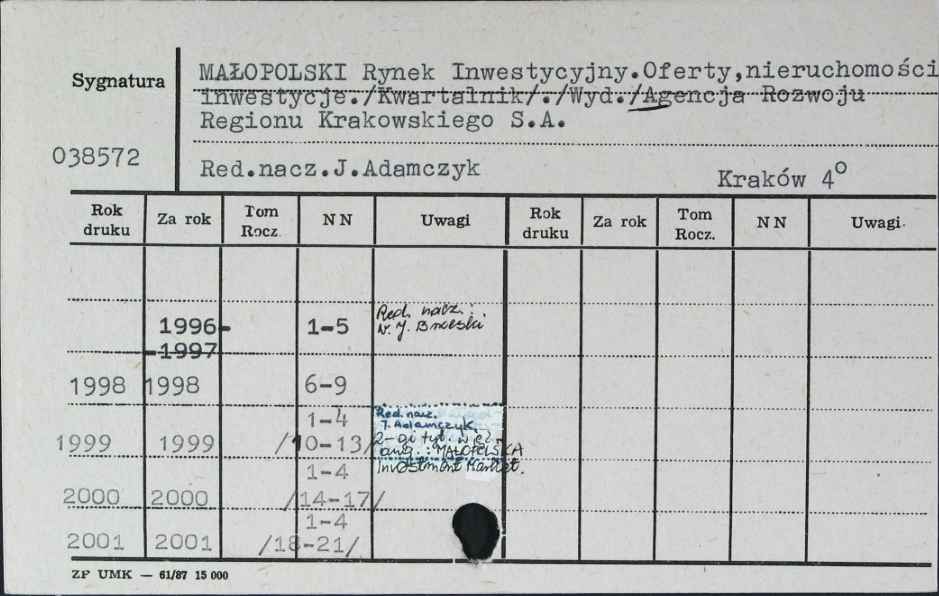 Sygnatura
MAŁOPOLSKI Rynek Inwestycyjny.Oferty,nieruchomości
inwestycje./Kwartalnik/./Wyd./Agencja Rozwoju
Regionu Krakowskiego S.A.
038572
Red.nacz.J.Adamczyk
Kraków 4°
Rok druku Za rok Tom Rocz. NN Uwagi Rok druku Za rok Tom Rocz. NN Uwagi
1996- 1-5 Red. nacz.:
W. J. Brzeski
-1997
1998 1998 6-9
1-4 Red. nacz.
J. Adamczyk.
1999 1999 /10-13/ 2-gi tyt. w jęz.
ang.: MAŁOPOLSKA
1-4 Investment Market.
2000 2000 /14-17/
1-4
2001 2001 /18-21/
ZP UMK — 61/87 15 000